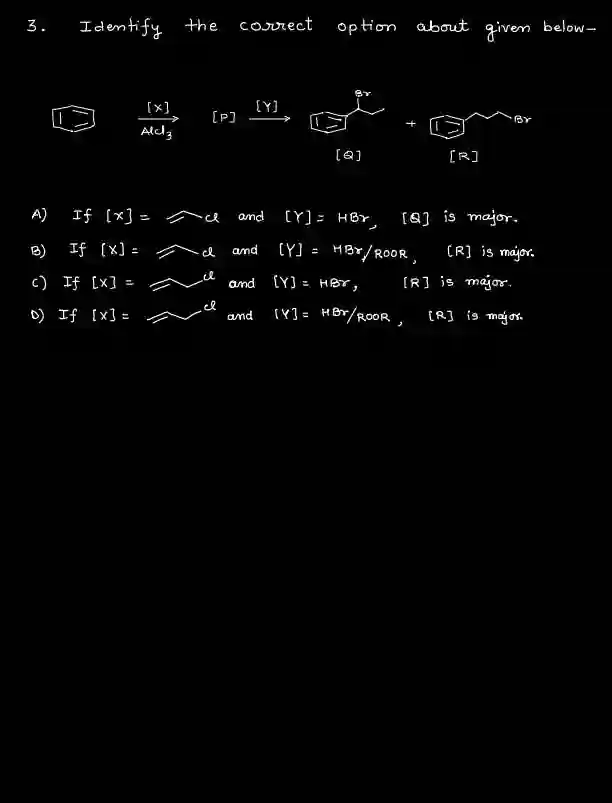 3. Identify the correct option about given below-
Br
[X] [Y]
AlCl3 [P] + Br
[Q] [R]
A) If [X] = Cl and [Y] = HBr, [Q] is major.
B) If [X] = Cl and [Y] = HBr/ROOR, [R] is major.
C) If [X] = Cl and [Y] = HBr, [R] is major.
D) If [X] = Cl and [Y] = HBr/ROOR, [R] is major.